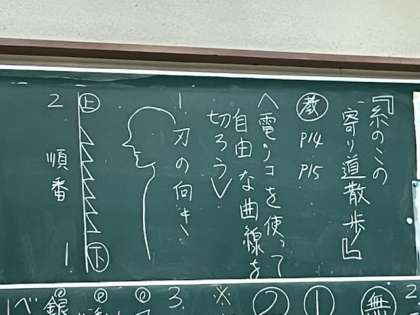 『糸のこの
寄り道散歩』
教 P14 P15
＜電ノコを使って
自由な曲線を
切ろう＞
1 刃の向き
上
下
2 順番 1
無
①
②
※
3.
銀
べ
2